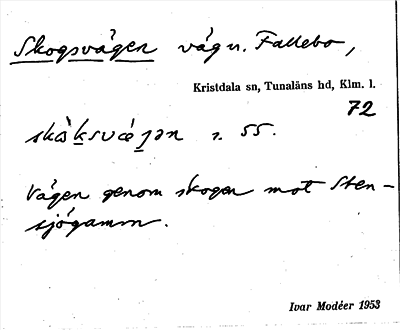 Skogsvägen vägn. Fallebo,
Kristdala sn, Tunaläns hd, Klm. l.
72
skò̀ksvǽgən s. 55.
Vägen genom skogen mot Sten-
sjögamm.
Ivar Modéer 1953